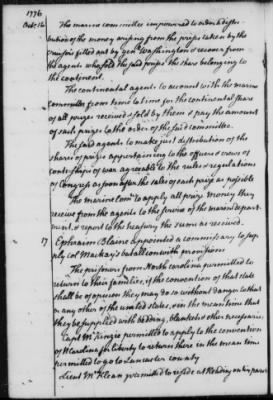 1776
Oct. 16
The marine committee impowered to order a distri-
bution of the money arising from the prizes taken by the
vessels fitted out by genl Washington & receive from
the agents who sold the said prizes the share belonging to
the continent.
The continental agents to account with the marine
committee from time to time for the continental share
of all prizes received & sold by them & pay the amount
of such prizes to the order of the said committee.
The said agents to make just distribution of the
shares of prizes appertaining to the officers & crews of
contl ships of war agreeable to the rules & regulations
of Congress as soon after the sales of each prize as possible
The marine Comee to apply all prize money they
receive from the agents to the service of the marine depart-
ment, & report to the treasury the sum so received.
17 Ephraim Blaine appointed a commissary to sup-
ply col Mackay's battalion with provisions
The prisoners from North carolina permitted to
return to their families, if the convention of that state
shall be of opinion they may do so without danger to that
or any other of the united states, & in the mean time that
they be supplied with bedding, blankets & other necessaries.
Capt McKenzie permitted to apply to the convention
of N carolina for liberty to return there in the mean time
permitted to go to Lancaster county
Lieut McLean permitted to reside at Reading on his parole